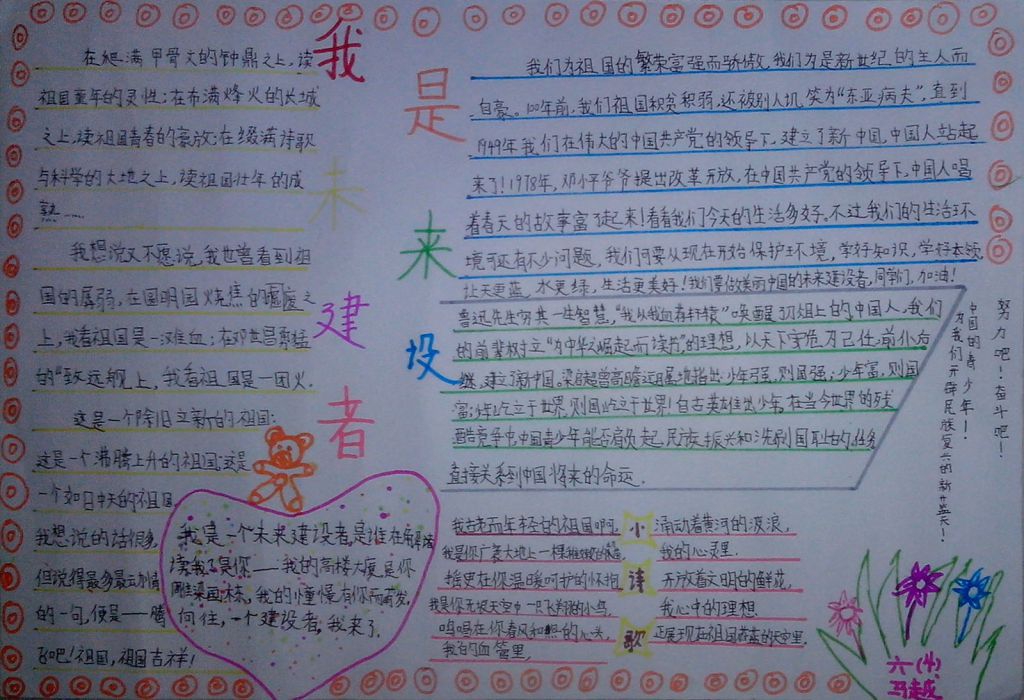 我是未来建设者
在爬满甲骨文的钟鼎之上,读
祖国童年的灵性;在布满烽火的长城
之上,读祖国青春的豪放;在缀满诗歌
与科学的大地之上,读祖国壮年的成
熟……
我想说又不愿说,我也曾看到祖
国的孱弱,在圆明园烧焦的废之
上,我看祖国是一滩血;在邓世昌
的“致远舰上,我看祖国是一团火.
这是一个除旧立新的祖国:
这是一个沸腾上升的祖国;这是
一个如日中天的祖国
我想说的话很多,
但说得最多最
的一句,便是——腾
飞吧!祖国,祖国吉祥!
我是一个未来建设者,是谁在
我是你——我的高楼大厦是你
雕梁画栋,我的憧憬有你而萌发,
向往,一个建设者,我来了.
我们为祖国的繁荣富强而骄傲,我们为是新世纪的主人而
自豪。100年前,我们祖国积贫积弱,还被别人讥笑为“东亚病夫”,直到
1949年我们在伟大的中国共产党的领导下,建立了新中国,中国人站起
来了!1978年,邓小平爷爷提出改革开放,在中国共产党的领导下,中国人唱
着春天的故事富了起来!看看我们今天的生活多好,不过我们的生活环
境可还有不少问题,我们可要从现在开始保护环境,学好知识,学好本领,
让天更蓝,水更绿,生活更美好!我们要做美丽中国的未来建设者,同学们,加油!
鲁迅先生穷其一生智慧,“我以我血荐轩辕”唤醒了刀俎上的中国人,我们
的前辈树立“为中华之崛起而读书”的理想,以天下安危为己任,前仆后
继,建立了新中国,梁启超曾高瞻远瞩地指出:少年强,则国强;少年富,则国
富;少年屹立于世界,则国屹立于世界!自古英雄出少年,在当今世界的残
酷竞争中,中国青少年能否肩负起民族振兴和洗刷国耻的任务
直接关系到中国将来的命运.
努力吧!奋斗吧!
中国的青少年!
为我们开辟民族复兴的新蓝天!
小诗歌
我古老而年轻的祖国啊,
我是你广袤大地上一棵
摇曳在你温暖呵护的怀抱
我是你无垠天空中一只飞翔的小鸟,
鸣唱在你春风和煦的心头,
我的血管里,
涌动着黄河的波浪,
我的心灵里.
开放着文明的鲜花,
我心中的理想
正展现在祖国蔚蓝的天空里.
六(4)